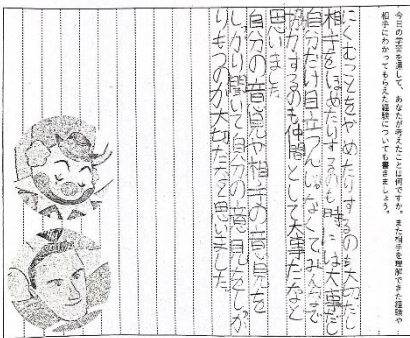 今日の学習を通して、あなたが考えたことは何ですか。また相手を理解できた経験や、
相手にわかってもらえた経験についても書きましょう。
にくむことをやめたりするのも大切だし
相手をほめたりするのも時には大事だし
自分だけ目立つんじゃなくてみんなで
やかするのも仲間として大事だなと
思いました
自分の意見や相手の意見を
しっかり聞いて自分の意見をしっか
りもつのが大切だと思いました。